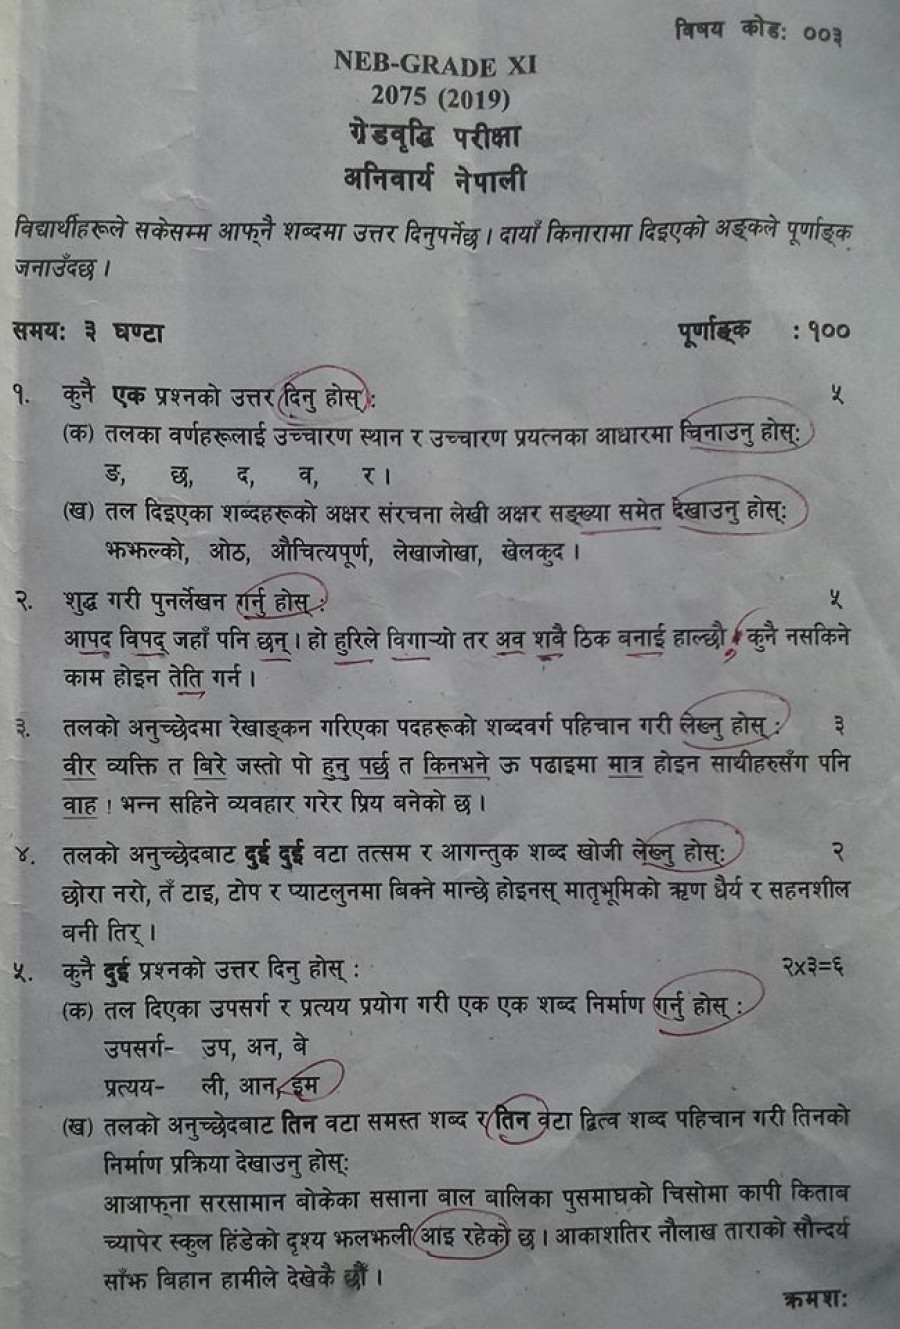 विषय कोड: ००३
NEB-GRADE XI
2075 (2019)
ग्रेडवृद्धि परीक्षा
अनिवार्य नेपाली
विद्यार्थीहरूले सकेसम्म आफ्नै शब्दमा उत्तर दिनुपर्नेछ । दायाँ किनारामा दिइएको अङ्कले पूर्णाङ्क
जनाउँदछ ।
समय: ३ घण्टा पूर्णाङ्क : १००
१. कुनै एक प्रश्नको उत्तर दिनु होस् : ५
(क) तलका वर्णहरूलाई उच्चारण स्थान र उच्चारण प्रयत्नका आधारमा चिनाउनु होस्:
ङ, छ, द, व, र ।
(ख) तल दिइएका शब्दहरूको अक्षर संरचना लेखी अक्षर सङ्ख्या समेत देखाउनु होस्:
झझल्को, ओठ, औचित्यपूर्ण, लेखाजोखा, खेलकुद ।
२. शुद्ध गरी पुनर्लेखन गर्नु होस् : ५
आपद् विपद् जहाँ पनि छन् । हो हुरिले विगार्‍यो तर अव शवै ठिक बनाई हाल्छौ कुनै नसकिने
काम होइन तेति गर्न ।
३. तलको अनुच्छेदमा रेखाङ्कन गरिएका पदहरूको शब्दवर्ग पहिचान गरी लेख्नु होस् : ३
वीर व्यक्ति त बिरे जस्तो पो हुनु पर्छ त किनभने ऊ पढाइमा मात्र होइन साथीहरुसँग पनि
वाह ! भन्न सहिने व्यवहार गरेर प्रिय बनेको छ ।
४. तलको अनुच्छेदबाट दुई दुई वटा तत्सम र आगन्तुक शब्द खोजी लेख्नु होस्: २
छोरा नरो, तँ टाइ, टोप र प्याटलुनमा बिक्ने मान्छे होइनस् मातृभूमिको ऋण धैर्य र सहनशील
बनी तिर् ।
५. कुनै दुई प्रश्नको उत्तर दिनु होस् : २x३=६
(क) तल दिएका उपसर्ग र प्रत्यय प्रयोग गरी एक एक शब्द निर्माण गर्नु होस् :
उपसर्ग- उप, अन, बे
प्रत्यय- ली, आन, इम
(ख) तलको अनुच्छेदबाट तिन वटा समस्त शब्द र तिन वटा द्वित्व शब्द पहिचान गरी तिनको
निर्माण प्रक्रिया देखाउनु होस्:
आआफ्ना सरसामान बोकेका ससाना बाल बालिका पुसमाघको चिसोमा कापी किताब
च्यापेर स्कुल हिंडेको दृश्य झलझली आइ रहेको छ । आकाशतिर नौलाख ताराको सौन्दर्य
साँझ बिहान हामीले देखेकै छौं ।
क्रमश: